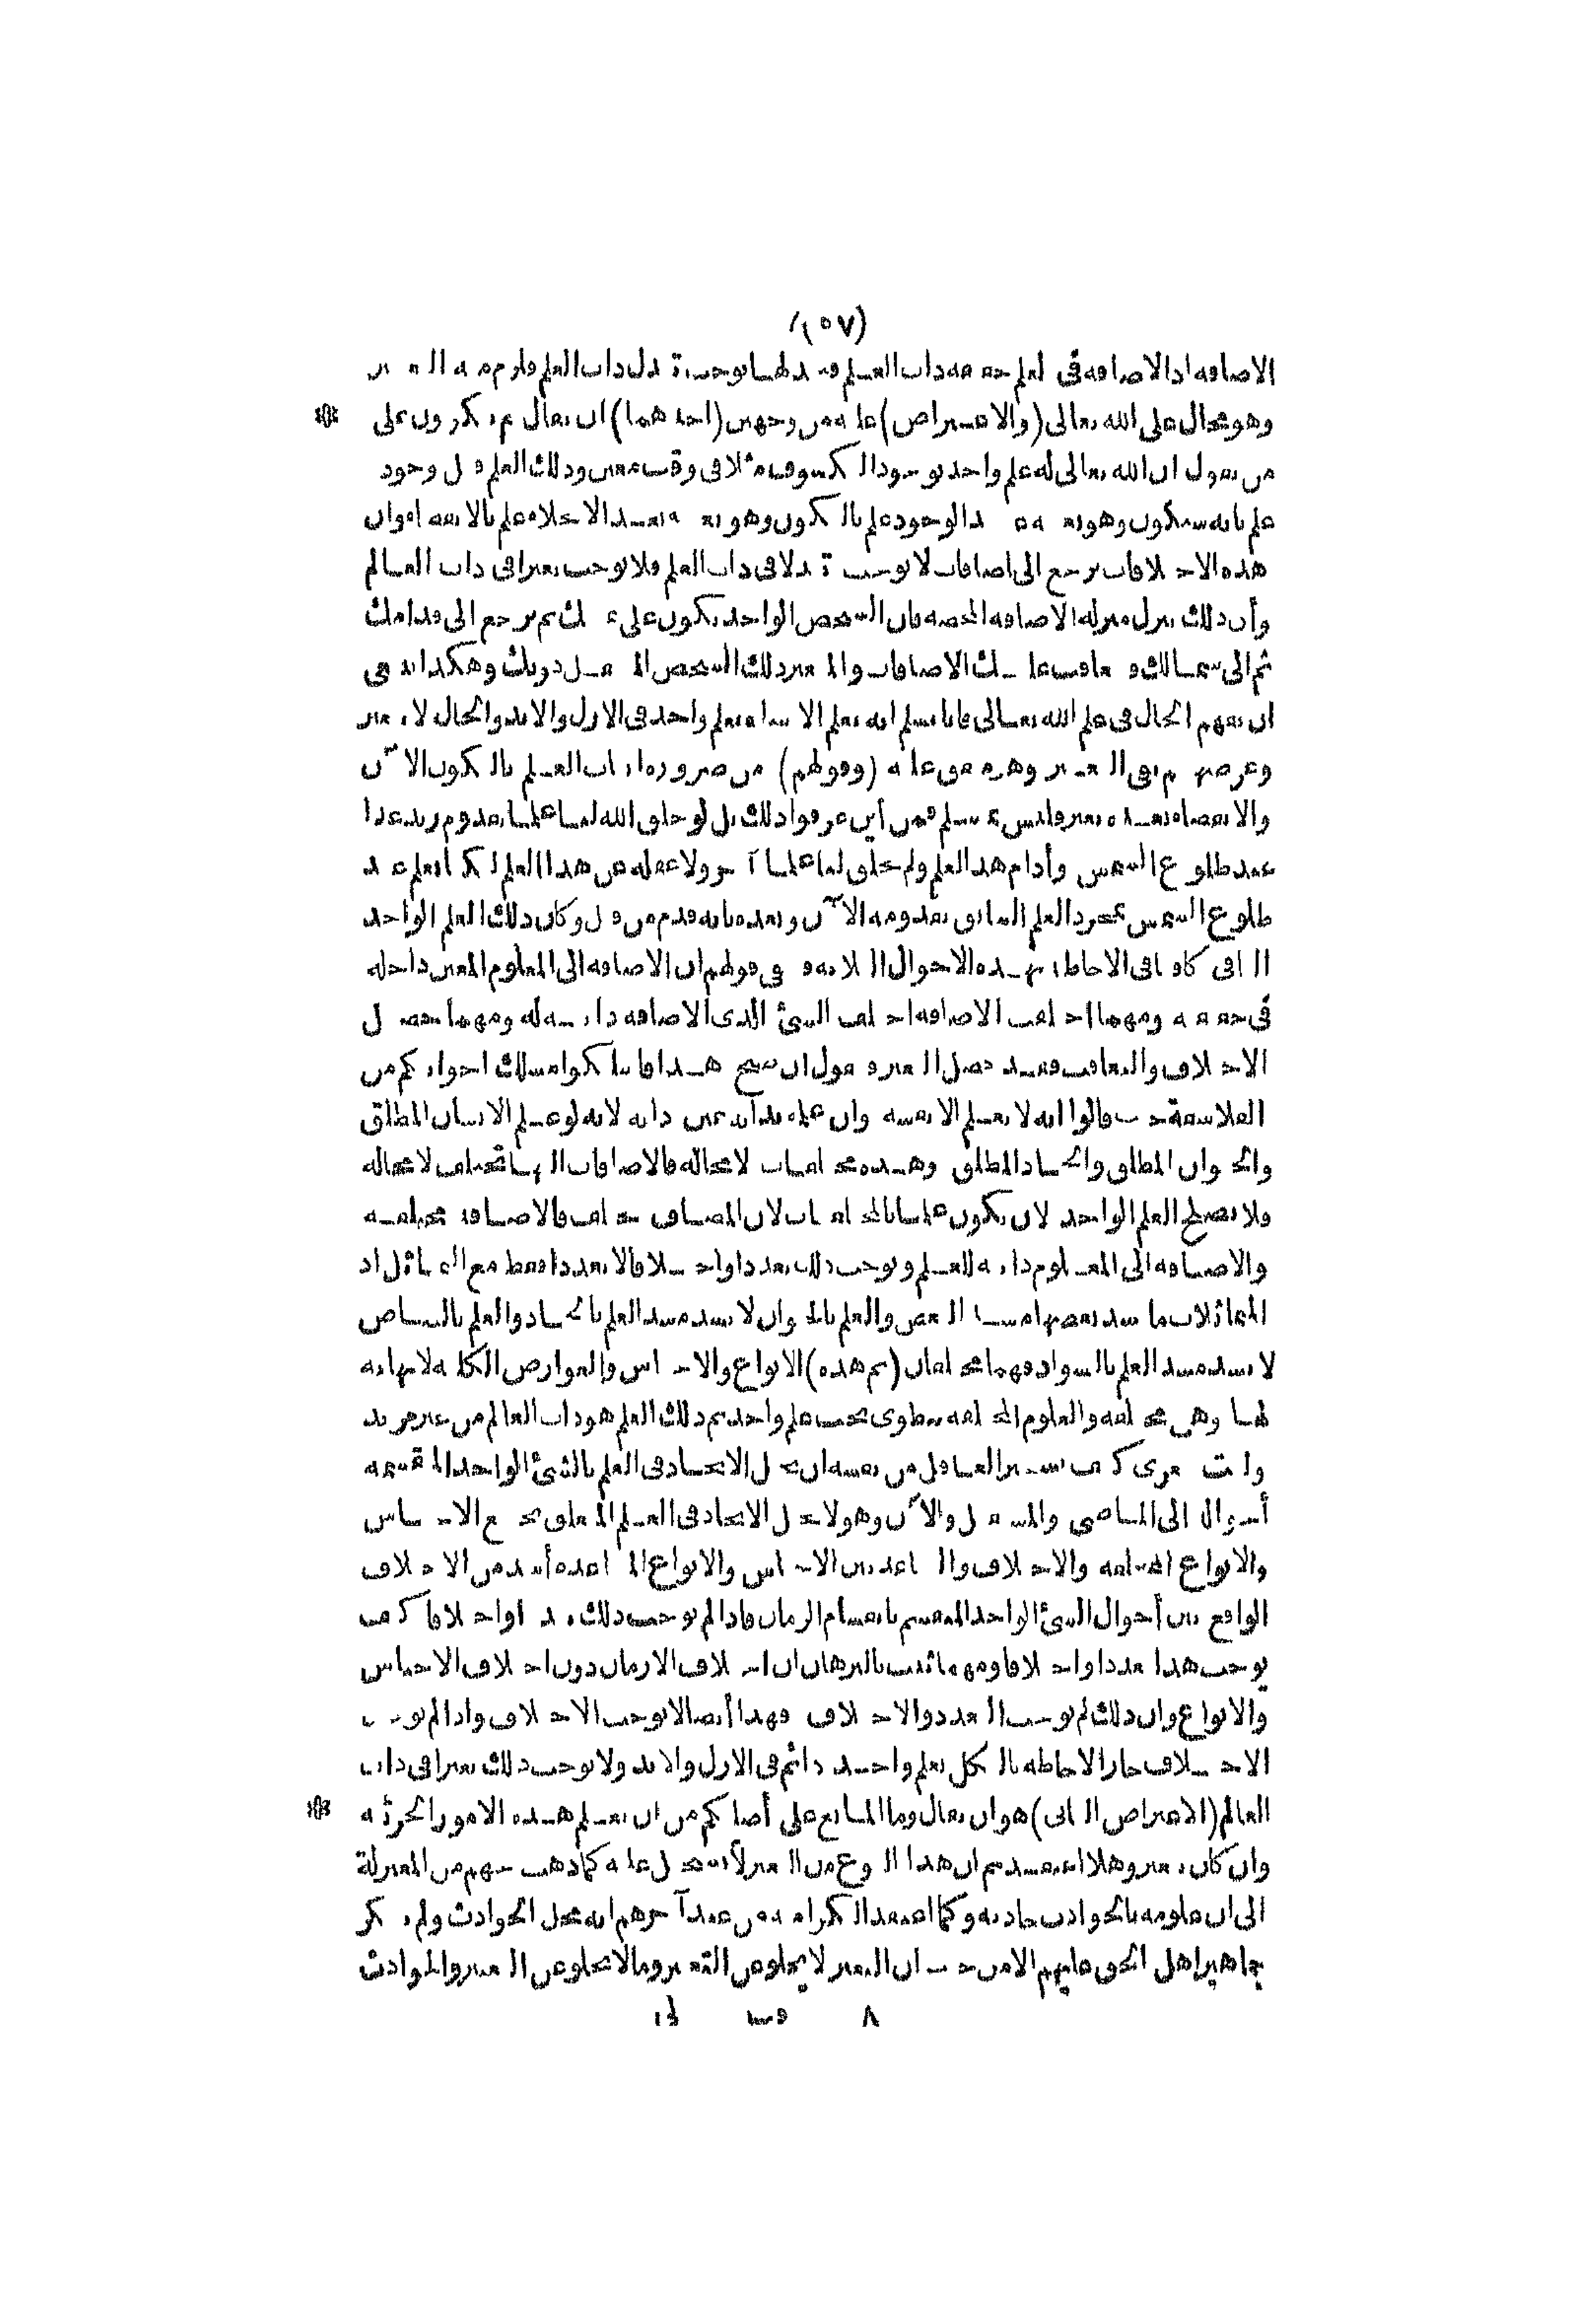 (١٥٧)
الاضافة اذ الاضافة في العلم حقيقة ذات العلم فتبدلها يوجب تبدل ذات العلم فيلزم منه التغير
وهو محال على الله تعالى (والاعتراض) عليه من وجهين (احدهما) ان يقال بم تنكرون على
من يقول ان الله تعالى له علم واحد بوجود الكسوف مثلا في وقت معين وذلك العلم قبل وجوده
علم بانه سيكون وهو بعينه عند الوجود علم بالكون وهو بعينه بعد الانجلاء علم بالانقضاء وان
هذه الاختلافات ترجع الى اضافات لا توجب تبدلا في ذات العلم فلا توجب تغيرا في ذات العالم
وأن ذلك ينزل منزلة الاضافة المحضة فان الشخص الواحد يكون على يمينك ثم يرجع الى قدامك
ثم الى شمالك فتتعاقب عليك الاضافات والمتغير ذلك الشخص المنتقل دونك وهكذا ينبغي
ان يفهم الحال في علم الله تعالى فانا نسلم انه يعلم الاشياء بعلم واحد في الازل والابد والحال لا يتغير
وغرضهم نفى التغير وهو متفق عليه (وقولهم) من ضرورة اثبات العلم بالكون الآن
والانقضاء بعده تغير فليس بمسلم فمن أين عرفوا ذلك بل لو خلق الله لنا علما بقدوم زيد غدا
عند طلوع الشمس وأدام هذا العلم ولم يخلق لنا علما آخر ولا غفلة عن هذا العلم لكنا نعلم عند
طلوع الشمس بمجرد العلم السابق بقدومه الآن وبعده بانه قدم من قبل وكان ذلك العلم الواحد
الباقي كافيا في الاحاطة بهذه الاحوال الثلاثة فيبقى قولهم ان الاضافة الى المعلوم المعين داخلة
في حقيقته ومهما اختلفت الاضافة اختلف الشئ الذي الاضافة ذاتية له ومهما حصل
الاختلاف والتعاقب فقد حصل التغير فنقول ان صح هذا فاسلكوا مسلك اخوانكم من
الفلاسفة حيث قالوا انه لا يعلم الا نفسه وان علمه بذاته عين ذاته لانه لو علم الانسان المطلق
والحيوان المطلق والجماد المطلق وهذه مختلفات لا محالة فالاضافات اليها تختلف لا محالة
ولا يصلح العلم الواحد لان يكون علما بالمختلفات لان المضاف مختلف فالاضافة مختلفة
والاضافة الى المعلوم ذاتية للعلم ويوجب ذلك تعددا واختلافا لا تعددا فقط مع التماثل اذ
المتماثلات ما سد بعضها مسد البعض والعلم بالحيوان لا يسد مسد العلم بالجماد والعلم بالبياض
لا يسد مسد العلم بالسواد فهما مختلفان (ثم هذه) الانواع والاجناس والعوارض الكلية لا نهاية
لها وهي مختلفة والعلوم المختلفة تنطوى تحت علم واحد ثم ذلك العلم هو ذات العالم من غير مزيد
وليت شعرى كيف يستجيز العاقل من نفسه ان يحيل الاتحاد في العلم بالشئ الواحد المنقسمة
أحواله الى الماضي والمستقبل والآن وهو لا يحيل الاتحاد في العلم المتعلق بجميع الاجناس
والانواع المختلفة والاختلاف والتباعد بين الاجناس والانواع المتباعدة أشد من الاختلاف
الواقع بين أحوال الشئ الواحد المنقسم بانقسام الزمان فاذا لم يوجب ذلك تعددا واختلافا كيف
يوجب هذا تعددا واختلافا ومهما ثبت بالبرهان ان اختلاف الازمان دون اختلاف الاجناس
والانواع وان ذلك لم يوجب التعدد والاختلاف فهذا أيضا لا يوجب الاختلاف واذا لم يوجب
الاختلاف جاز الاحاطة بالكل بعلم واحد دائم في الازل والابد ولا يوجب ذلك تغيرا في ذات
العالم (الاعتراض الثانى) هو ان يقال وما المانع على أصلكم من ان يعلم هذه الامور الجزئية
وان كان يتغير وهلا اعتقدتم ان هذا النوع من التغير لا يستحيل عليه كما ذهب جهم من المعتزلة
الى ان علومه بالحوادث حادثة وكما اعتقد الكرامية من عند آخرهم انه محل الحوادث ولم ينكر
جماهير اهل الحق عليهم الا من حيث ان المتغير لا يخلو عن التغير وما لا يخلو عن التغير والحوادث
٨